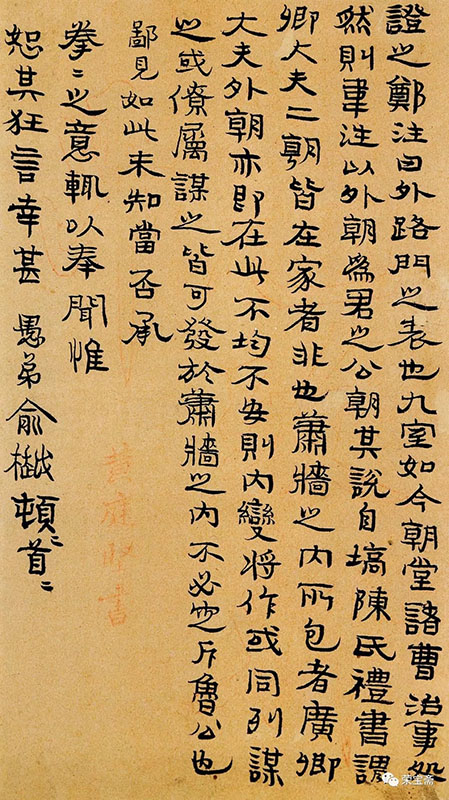 證之鄭注曰外路門之表也九室如今朝堂諸曹治事処
然則韋注以外朝爲君之公朝其說自塙陳氏禮書謂
卿大夫二朝皆在家者非也蕭牆之內所包者廣卿
大夫外朝亦即在此不均不安則內變將作或同列謀
之或僚屬謀之皆可發於蕭牆之內不必定斥魯公也
鄙見如此未知當否承
拳〻之意輒以奉聞惟
恕其狂言幸甚 愚弟俞樾頓〻首〻
荣宝斋